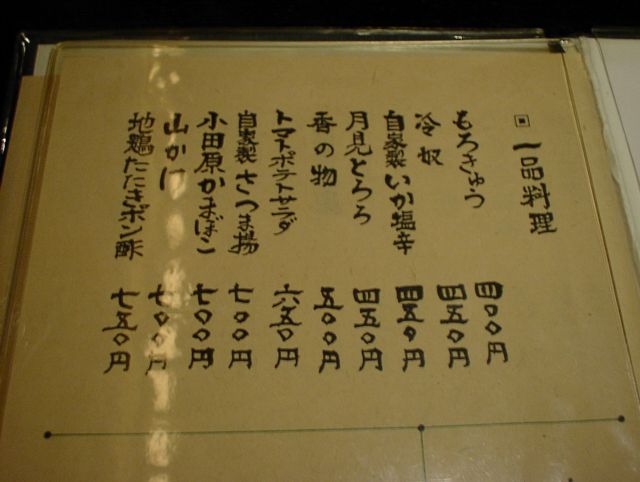 一品料理
もろきゅう 四〇〇円
冷奴 四五〇円
自家製いか塩辛 四五〇円
月見とろろ 四五〇円
香の物 五〇〇円
トマトポテトサラダ 六五〇円
自家製さつま揚 七〇〇円
小田原かまぼこ 七〇〇円
山かけ 七〇〇円
地鶏たたきポン酢 七五〇円